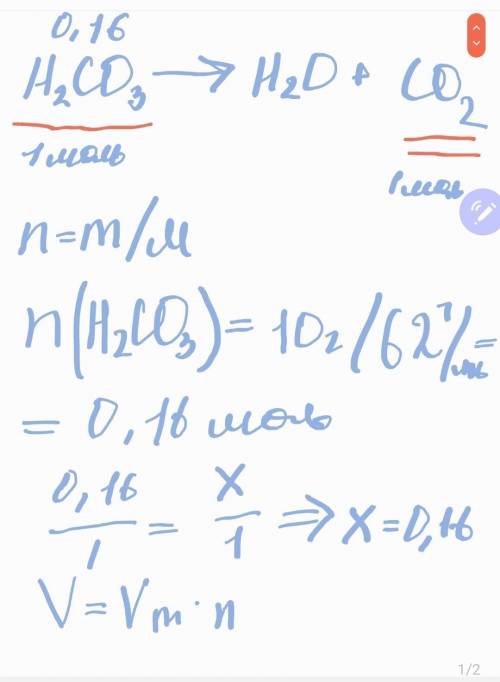 0,16
H₂CO₃ → H₂O + CO₂
1 моль 1 моль
n=m/M
n(H₂CO₃)= 10г/62г/моль=
= 0,16 моль
0,16/1 = X/1 ⇒ X=0,16
V=Vm·n
1/2